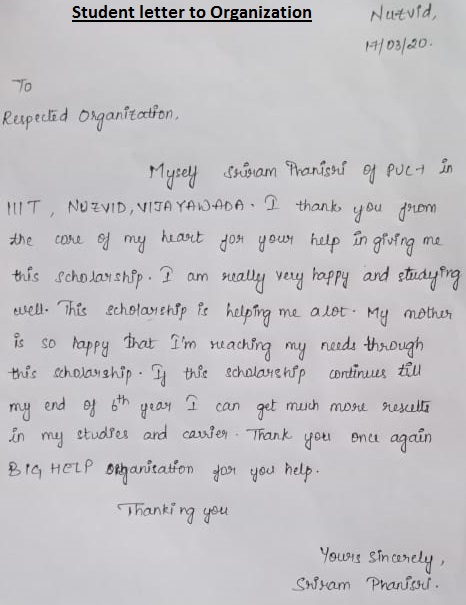 Student letter to Organization
Nuzvid,
17/03/20.
To
Respected Organization,
Myself Sriram Phanisri of PUC-1 in
IIIT, NUZVID, VIJAYAWADA. I thank you from
the core of my heart for your help in giving me
this scholarship. I am really very happy and studying
well. This scholarship is helping me alot. My mother
is so happy that I'm reaching my needs through
this scholarship. If this scholarship continues till
my end of 6th year I can get much more results
in my studies and carrier. Thank you once again
BIG HELP organisation for you help.
Thanking you
Yours sincerely,
Sriram Phanisri.